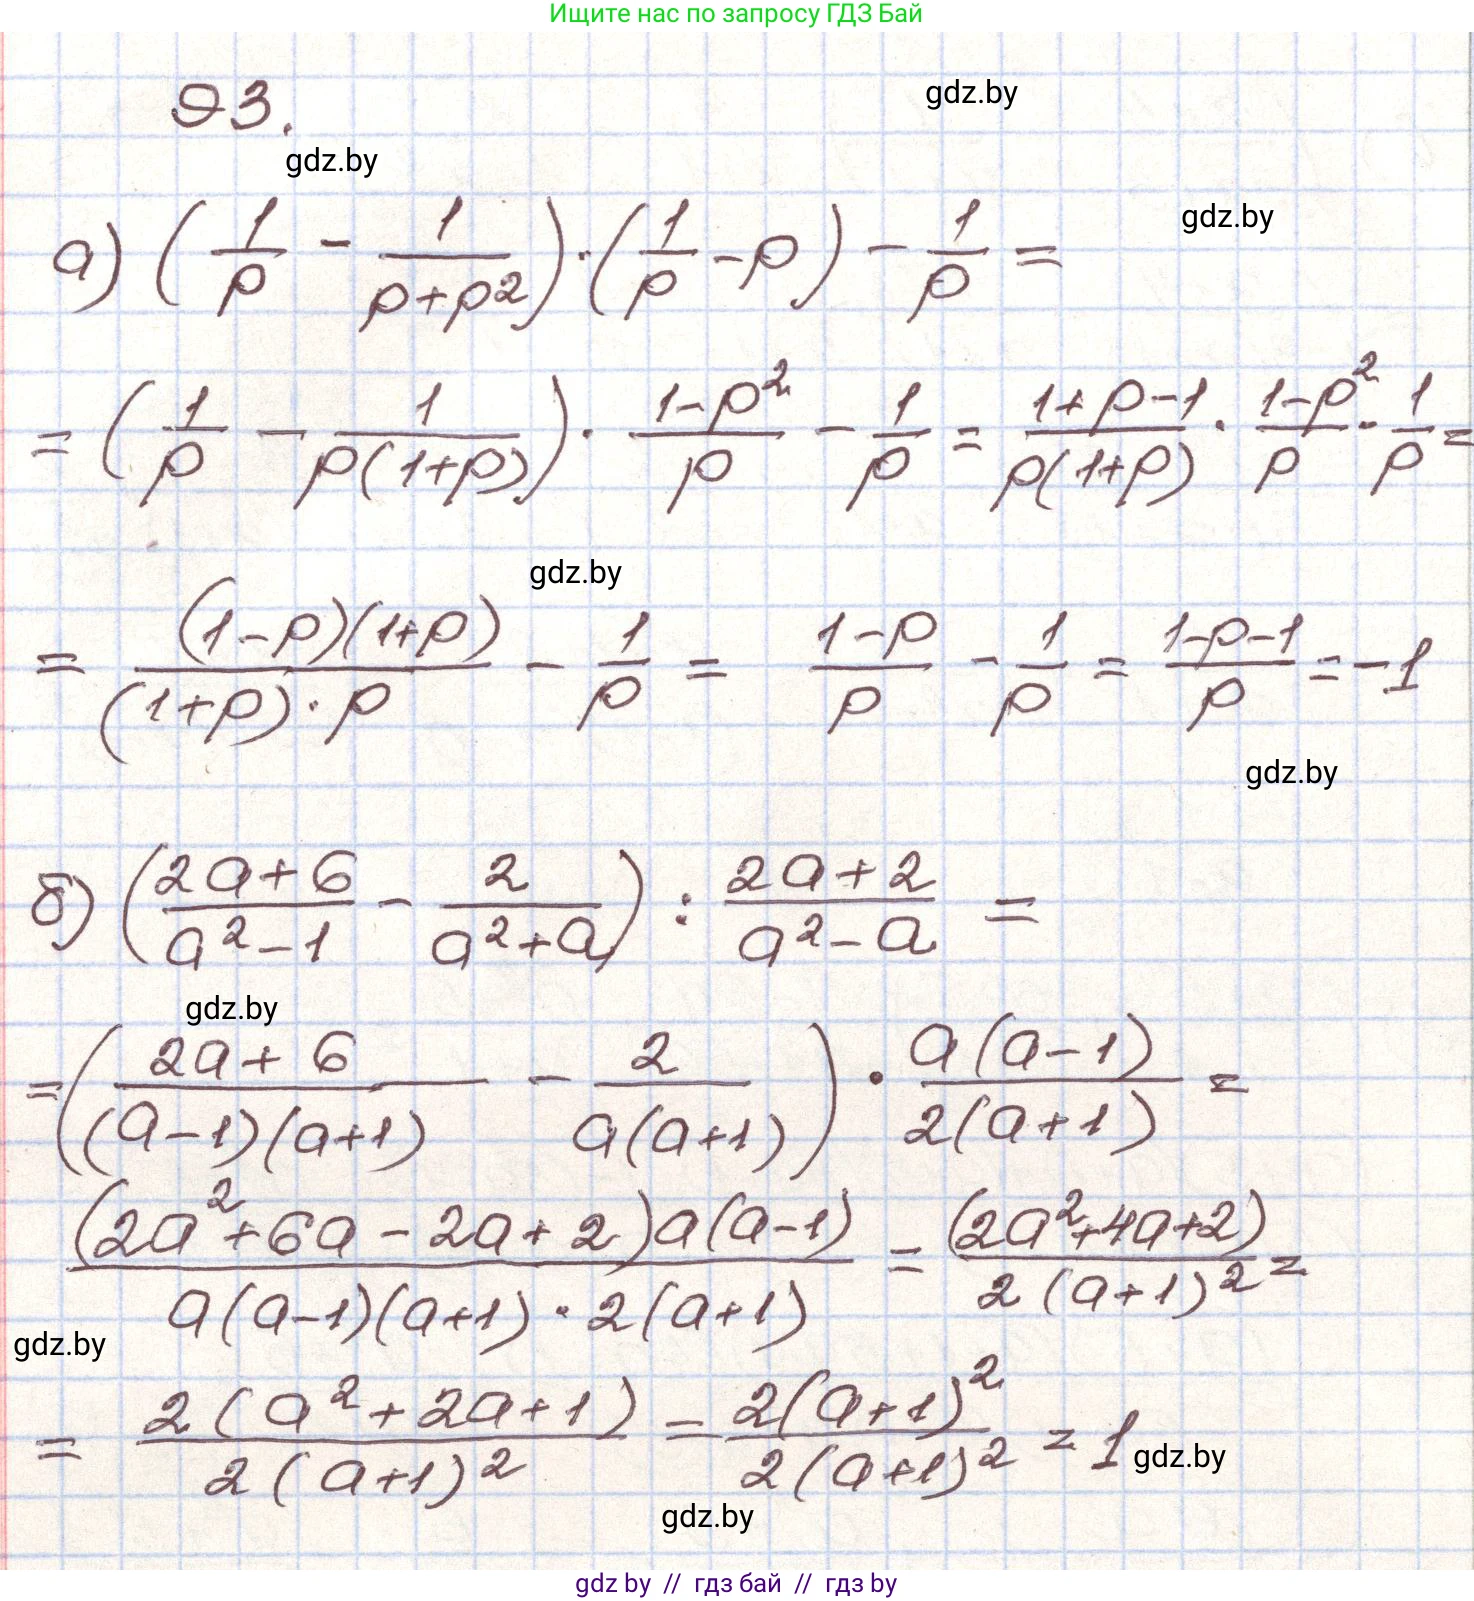 Ищите нас по запросу ГДЗ Бай
93.
gdz.by
gdz.by
gdz.by
а) (1/p - 1/(p+p²)) · (1/p - p) - 1/p =
= (1/p - 1/(p(1+p))) · (1-p²)/p - 1/p = (1+p-1)/(p(1+p)) · (1-p²)/p - 1/p =
gdz.by
= ((1-p)(1+p))/((1+p)·p) - 1/p = (1-p)/p - 1/p = (1-p-1)/p = -1
gdz.by
б) ((2a+6)/(a²-1) - 2/(a²+a)) : (2a+2)/(a²-a) =
gdz.by
= ((2a+6)/((a-1)(a+1)) - 2/(a(a+1))) · (a(a-1))/(2(a+1)) =
((2a²+6a-2a+2)a(a-1))/(a(a-1)(a+1)·2(a+1)) = (2a²+4a+2)/(2(a+1)²) =
gdz.by
= (2(a²+2a+1))/(2(a+1)²) = (2(a+1)²)/(2(a+1)²) = 1
gdz.by
gdz.by
gdz by // гдз бай // гдз by